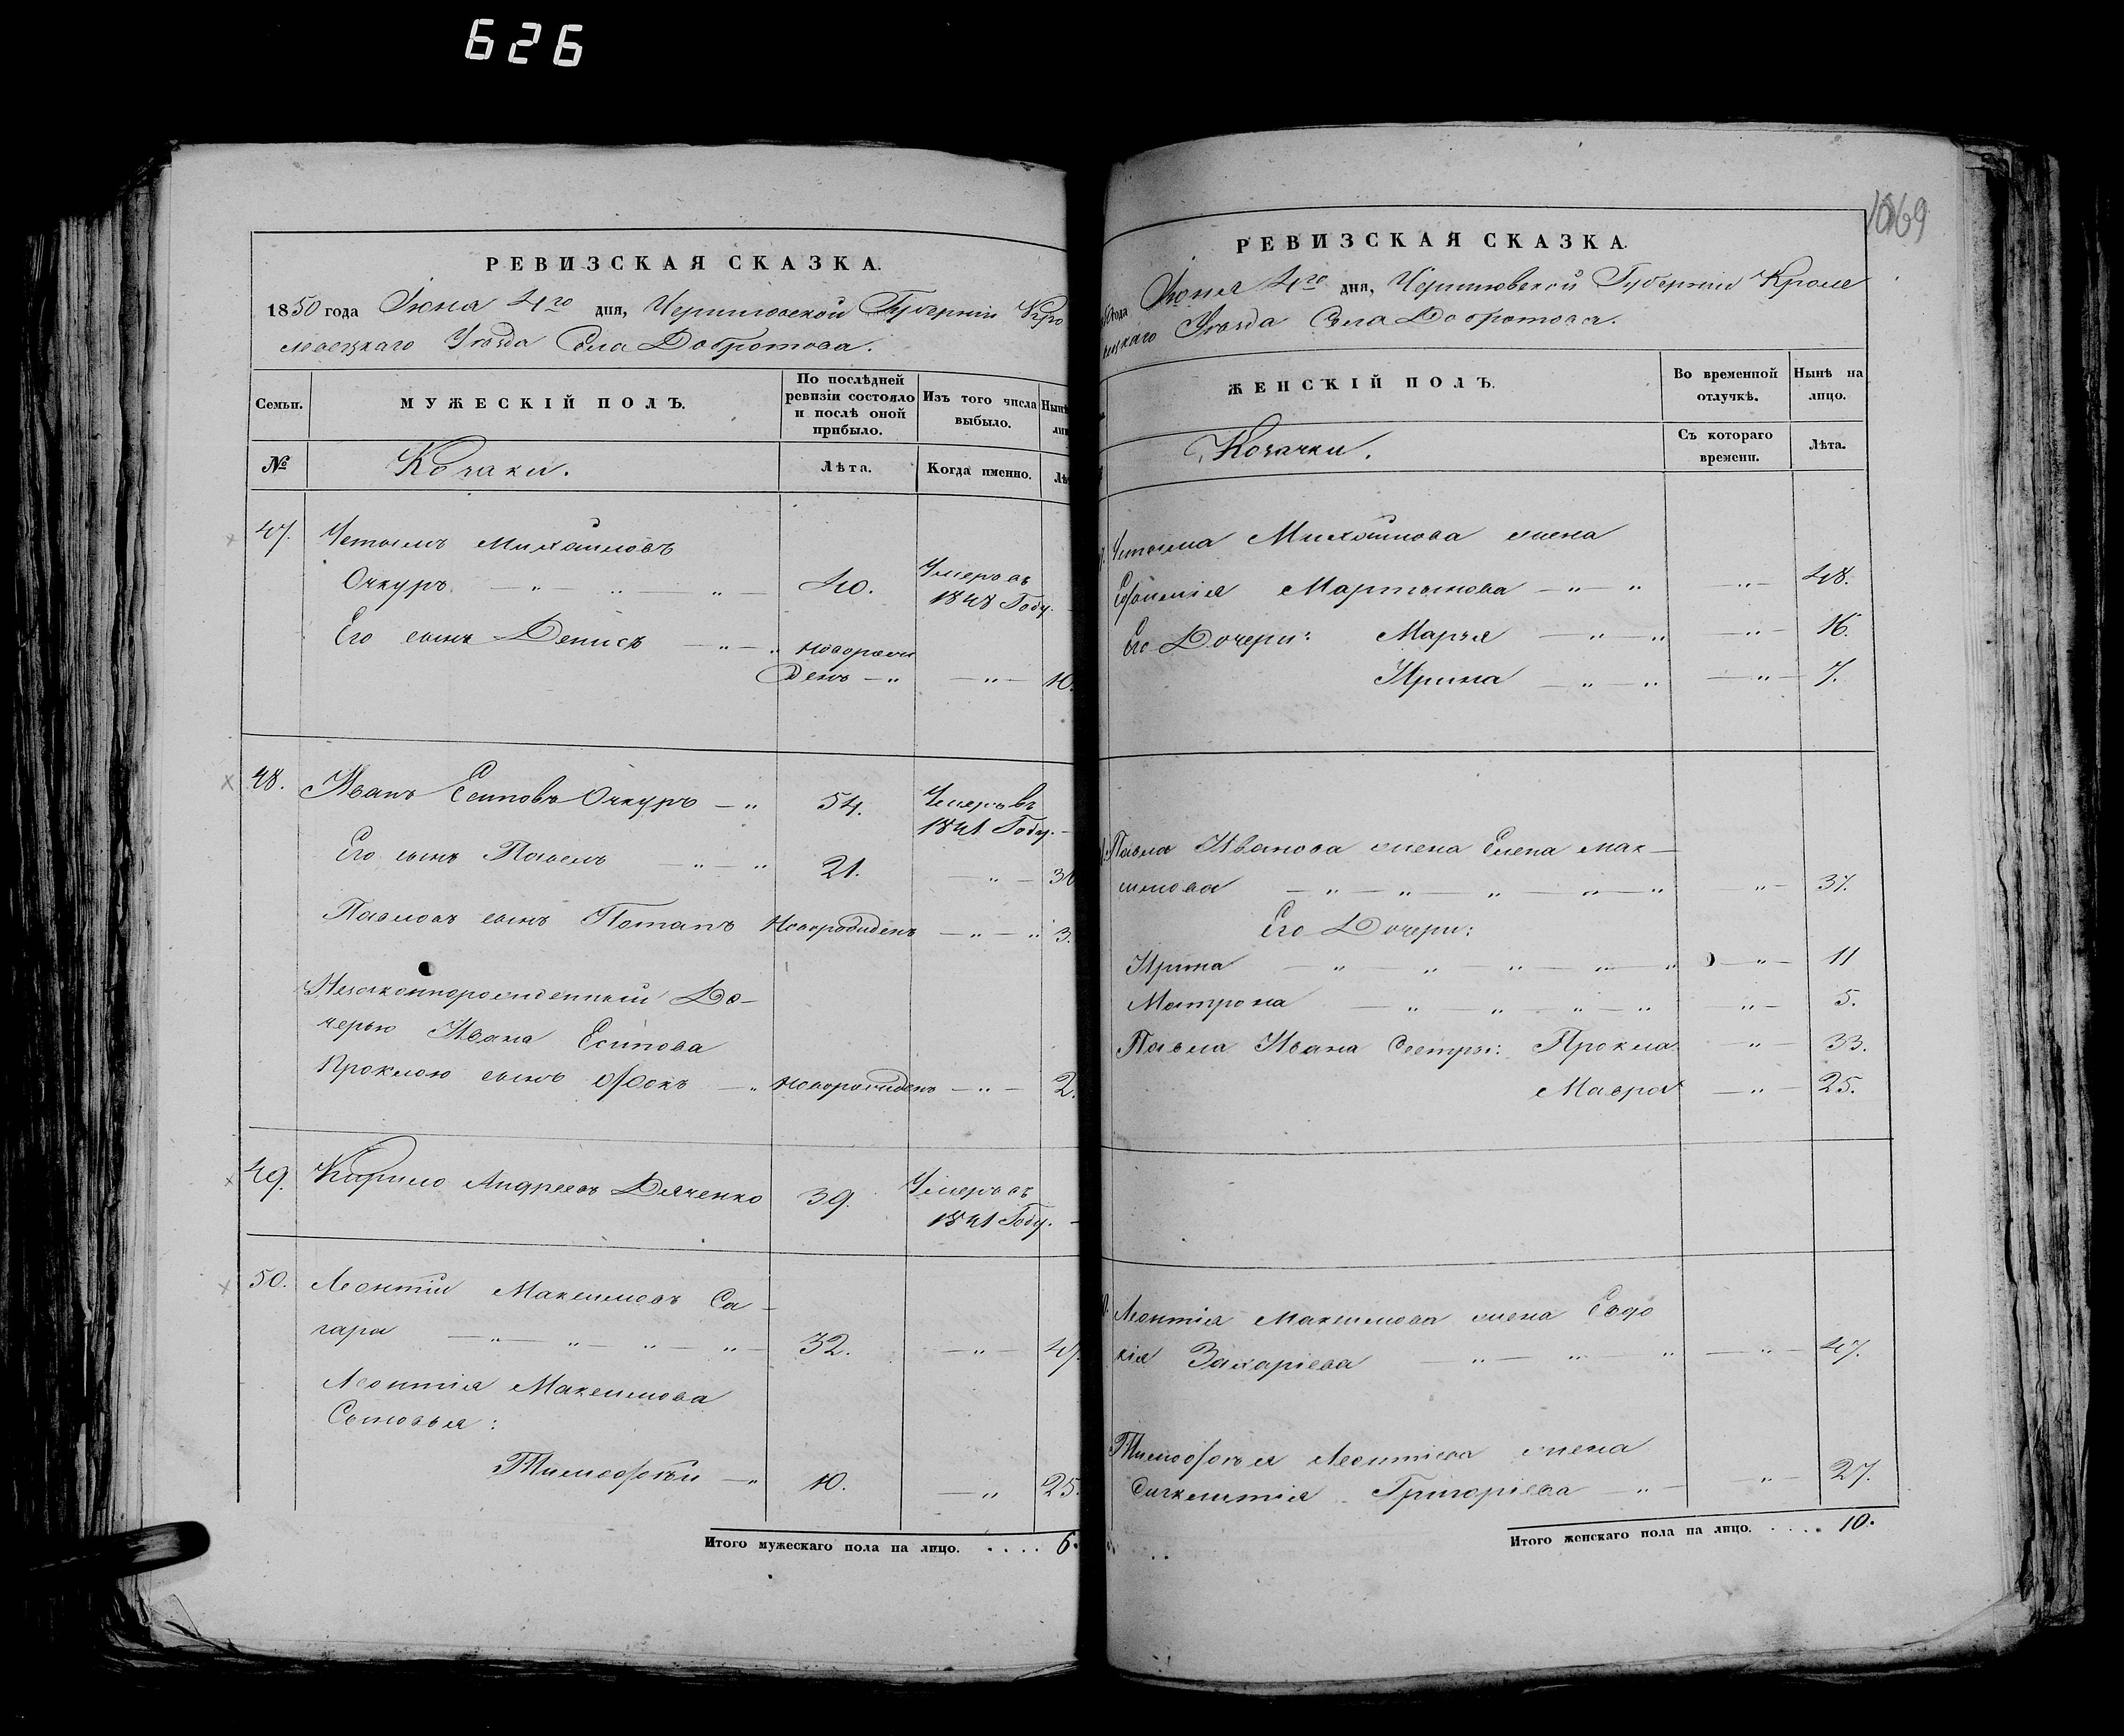 626
РЕВИЗСКАЯ СКАЗКА.
1850 года Іюня 4го дня, Черниговской Губерніи Кро
левецкаго Уѣзда Села Добротова.
Семьи.
МУЖЕСКІЙ ПОЛЪ.
По послѣдней
ревизіи состояло
и послѣ оной
прибыло.
Изъ того числа
выбыло.
№
Козаки.
Лѣта.
Когда именно.
47. Михайловъ
Очкуръ 40. Умеръ въ
1848 Году.
Его сынъ Денисъ новорож
денъ 10.
48. Иванъ Есиповъ Очкуръ 54. Умеръ въ
1841 Году.
Его сынъ Павелъ 21.
Павловъ сынъ Потапъ Новорожденъ 3.
Незаконнорожденный До-
черью Ивана Есипова
Проклою сынъ новорожденъ 2.
49. Кирило Андреевъ Дяченко 39. Умеръ въ
1841 Году.
50. Леонтій Максимовъ Са-
гара 32. 47.
Леонтія Максимова
Сыновья:
Тимофѣй 10. 25.
Итого мужескаго пола на лицо. . . . . 6.
1069
РЕВИЗСКАЯ СКАЗКА.
года Іюня 4го дня, Черниговской Губерніи Кроле
вецкаго Уѣзда Села Добротова.
ЖЕНСКІЙ ПОЛЪ.
Во временной
отлучкѣ.
Нынѣ на
лицо.
Козачки.
Съ котораго
времени.
Лѣта.
Михайлова жена
Мартынова 48.
Его Дочери: Марья 16.
Ирина 7.
Павла Иванова жена Елена Мак-
симова 37.
Его Дочери:
Ирина 11
Мотрона 5.
Павла Ивана Сестры: Прокла 33.
Мавра 25.
Леонтія Максимова жена Евдо
кія Захаріева 47.
Тимофѣя Леонтіева жена
Григоріева 27.
Итого женскаго пола на лицо. . . . . 10.